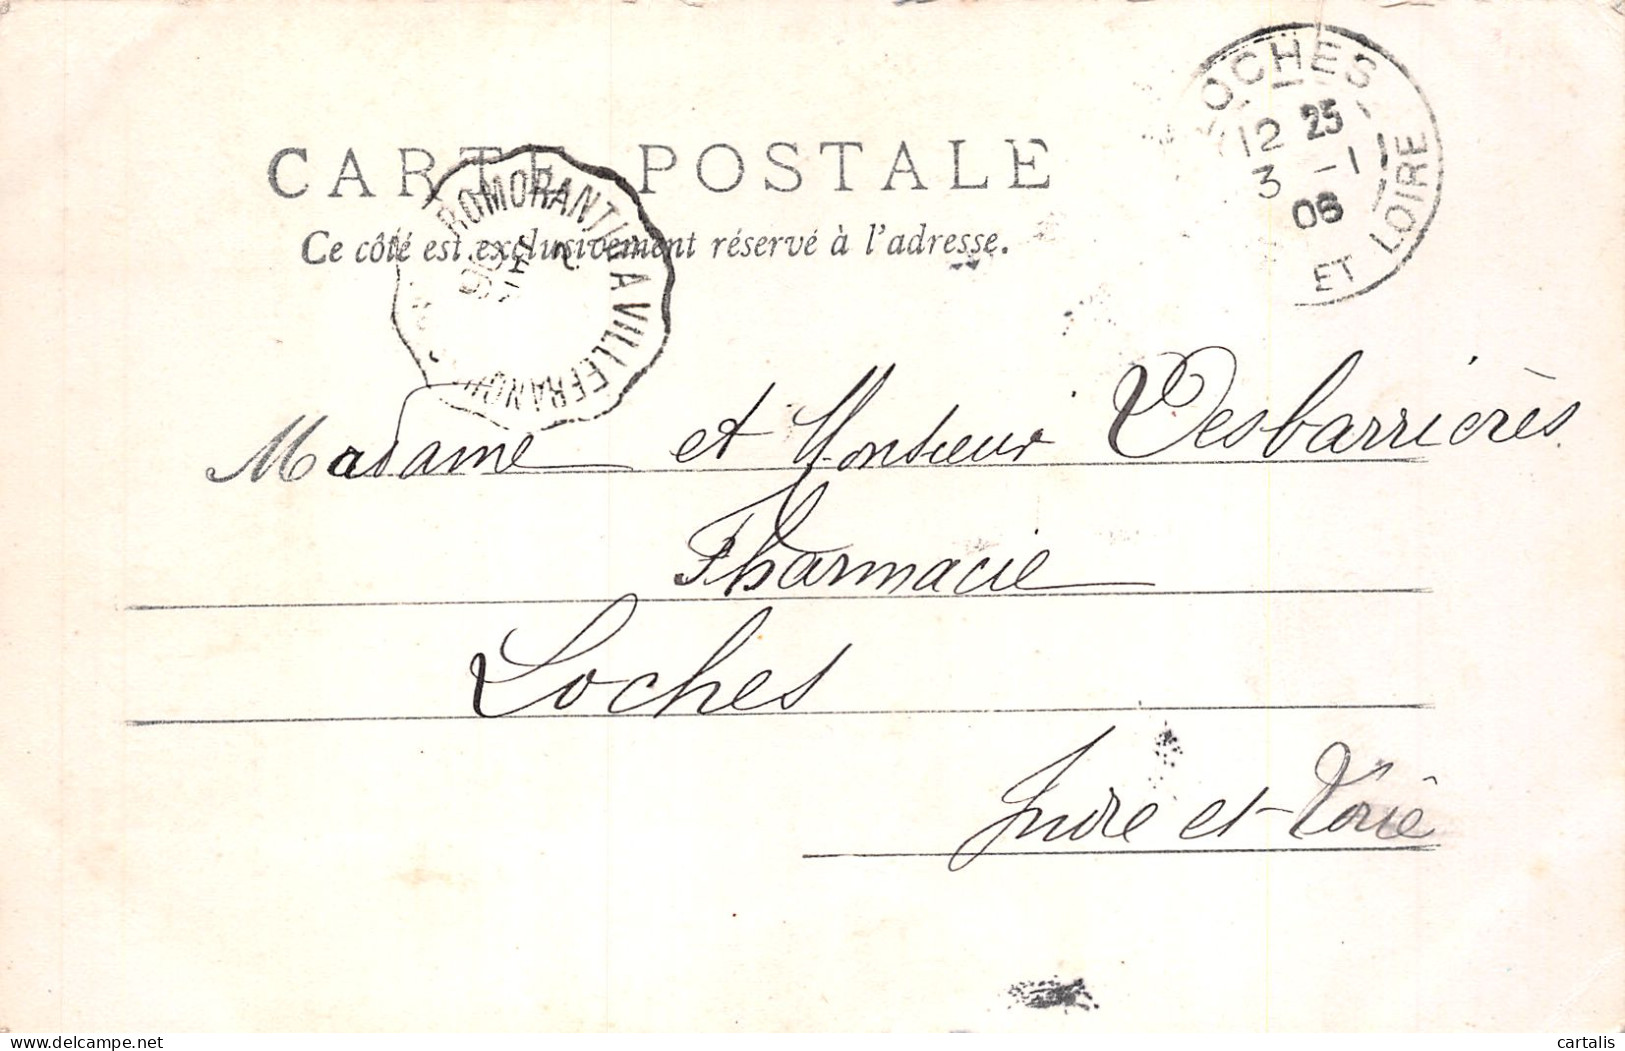 CARTE POSTALE
Ce côté est exclusivement réservé à l'adresse.
ROMORANTIN A VILLEFRANCHE
JANV
06
LOCHES
12 25
3 -1
06
ET LOIRE
Madame et Monsieur Desbarrières
Pharmacie
Loches
Indre et Loire
delcampe.net
cartalis